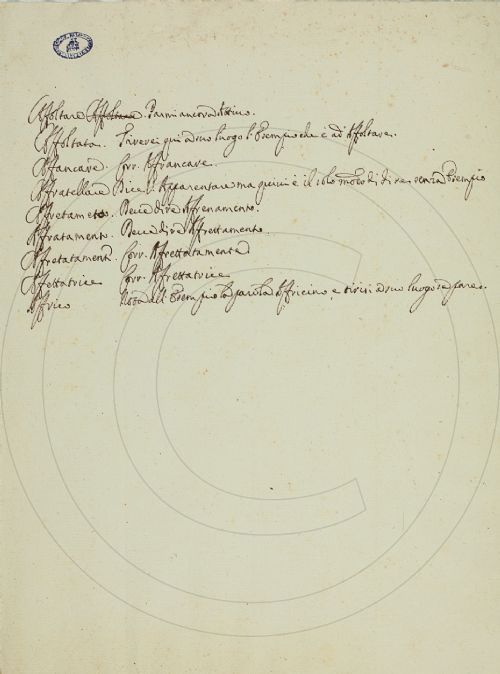 Affoltare Affoltare. Parmi ancora ottimo.
Affoltata. Tirerei qui a suo luogo l'Esempio che è ad Affoltare.
Affancare. Corr. Affrancare.
Affratellare Dice: Apparentare ma quivi è il solo modo di dire senza Esempio
Affretameto. Deve dire Affrenamento.
Affratamento. Deve dire Affrettamento.
Affretatament. Corr. Affrettatamente
Affettatrice Corr. Affrettatrice
Affrico Nota all'Esempio la parola Affricino, e tirisi a suo luogo se pare.